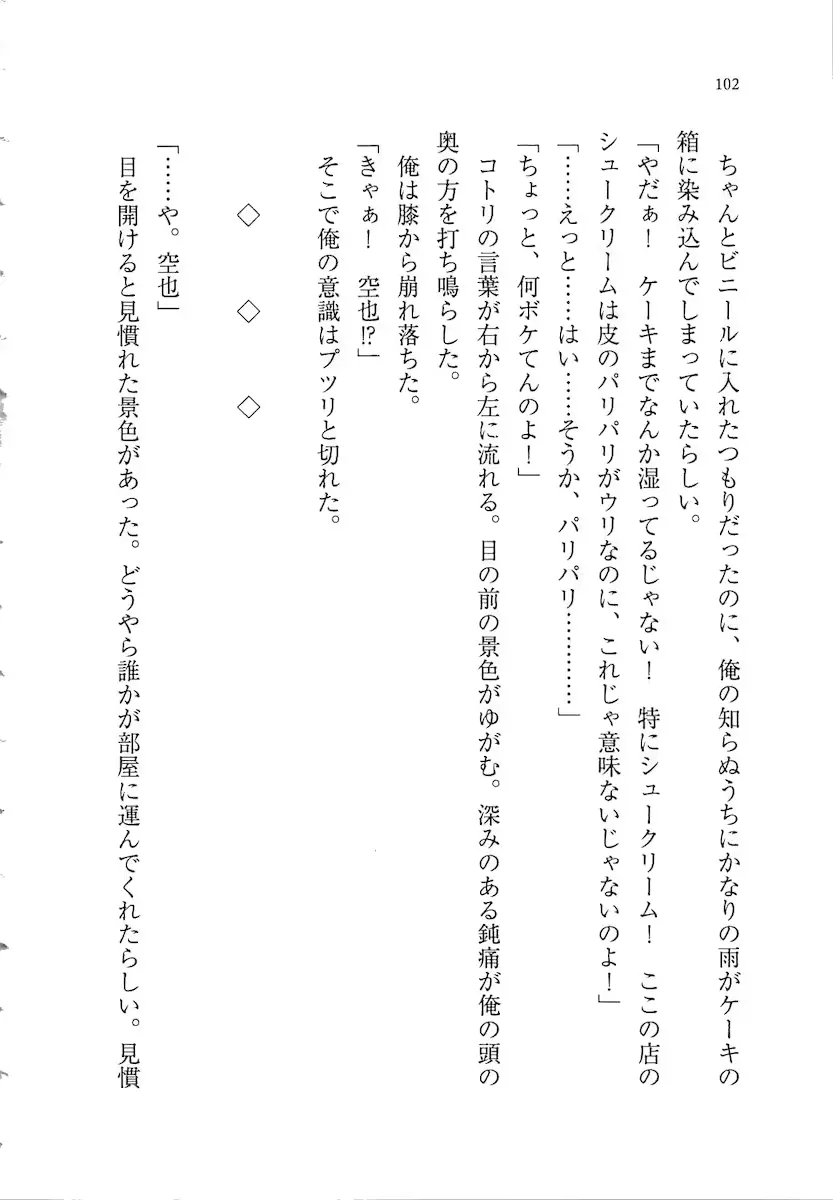 102
ちゃんとビニールに入れたつもりだったのに、俺の知らぬうちにかなりの雨がケーキの
箱に染み込んでしまっていたらしい。
「やだぁ！　ケーキまでなんか湿ってるじゃない！　特にシュークリーム！　ここの店の
シュークリームは皮のパリパリがウリなのに、これじゃ意味ないじゃないのよ！」
「……えっと……はい……そうか、パリパリ…………」
「ちょっと、何ボケてんのよ！」
コトリの言葉が右から左に流れる。目の前の景色がゆがむ。深みのある鈍痛が俺の頭の
奥の方を打ち鳴らした。
俺は膝から崩れ落ちた。
「きゃぁ！　空也!?」
そこで俺の意識はプツリと切れた。
◇　◇　◇
「……や。空也」
目を開けると見慣れた景色があった。どうやら誰かが部屋に運んでくれたらしい。見慣